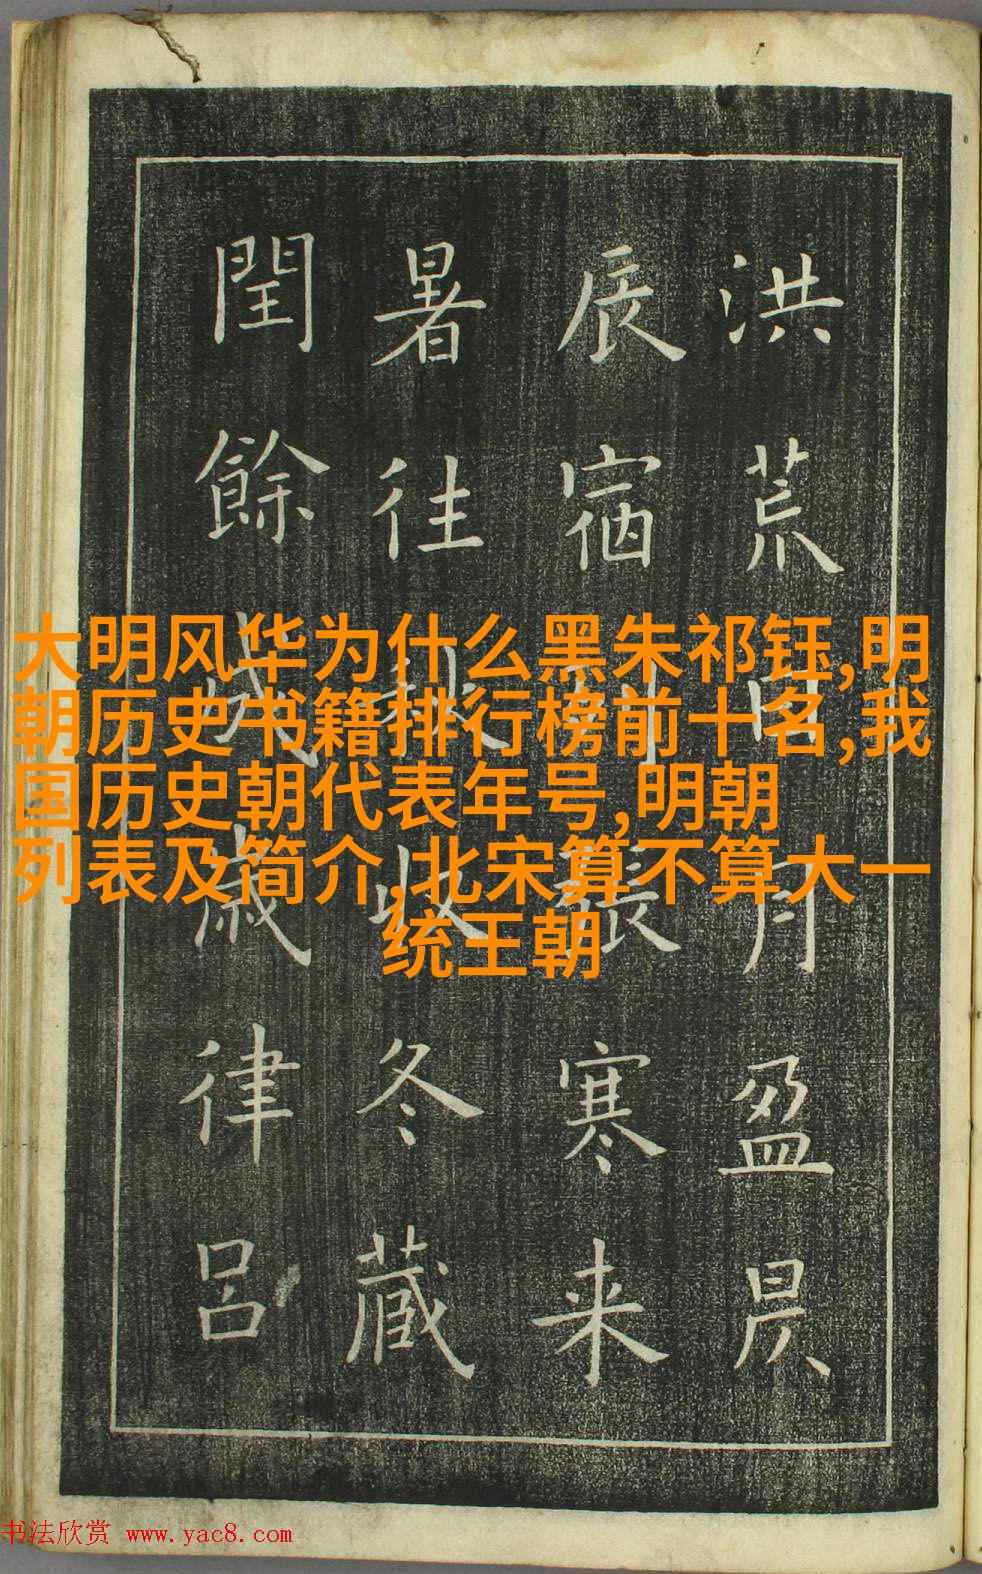 洪荒日月盈昃
辰宿列張寒来
暑往秋收冬藏
閏餘成歲律呂
大明风华为什么黑朱祁钰,明
朝历史书籍排行榜前十名,我
国历史朝代表年号,明朝
列表及简介,北宋算不算大一
统王朝
书法欣赏 www.yac8.com